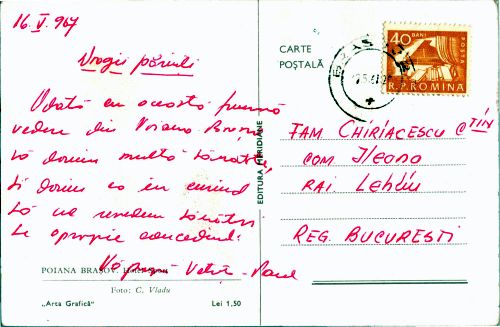 16.V.967
Dragii părinți
Odată cu această frumoasă
vedere din Poiana Brașov
vă dorim multă sănătate
și dorim ca în curînd
să ne revedem sănătoși
Se apropie concediul.
Vă pupă
POIANA BRAȘOV.
Foto: C. Vladu
„Arta Grafică”
Lei 1,50
EDITURA MERIDIANE
CARTE
POȘTALĂ
40 BANI
POSTA
R.P.ROMINA
FAM CHIRIACESCU
COM Ileana
RAI Lehliu
REG. BUCUREȘTI